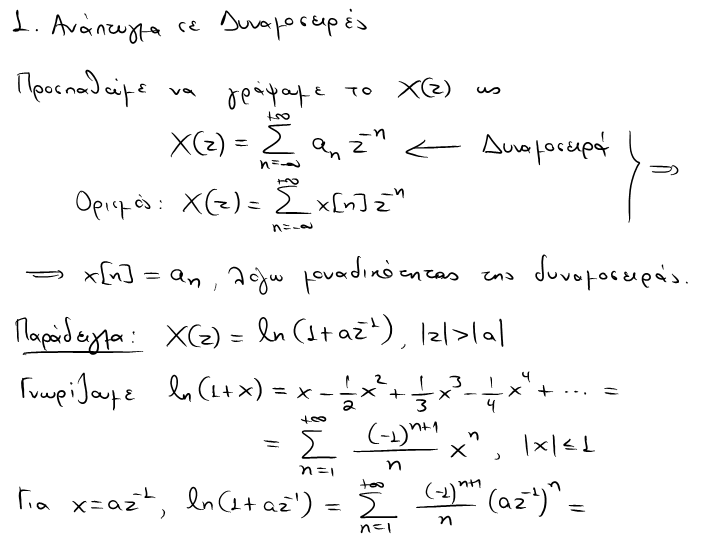 1. Ανάπτυγμα σε Δυναμοσειρές
Προσπαθούμε να γράψουμε το X(z) ως
X(z) = \sum_{n=-∞}^{+∞} a_n z^{-n} ← Δυναμοσειρά
Ορισμός: X(z) = \sum_{n=-∞}^{+∞} x[n] z^{-n} } ⇒
⇒ x[n] = a_n, λόγω μοναδικότητας της δυναμοσειράς.
Παράδειγμα: X(z) = ln(1+az^{-1}), |z|>|a|
Γνωρίζουμε ln(1+x) = x - \frac{1}{2}x^2 + \frac{1}{3}x^3 - \frac{1}{4}x^4 + ... =
= \sum_{n=1}^{+∞} \frac{(-1)^{n+1}}{n} x^n, |x|≤1
Για x=az^{-1}, ln(1+az^{-1}) = \sum_{n=1}^{+∞} \frac{(-1)^{n+1}}{n} (az^{-1})^n =